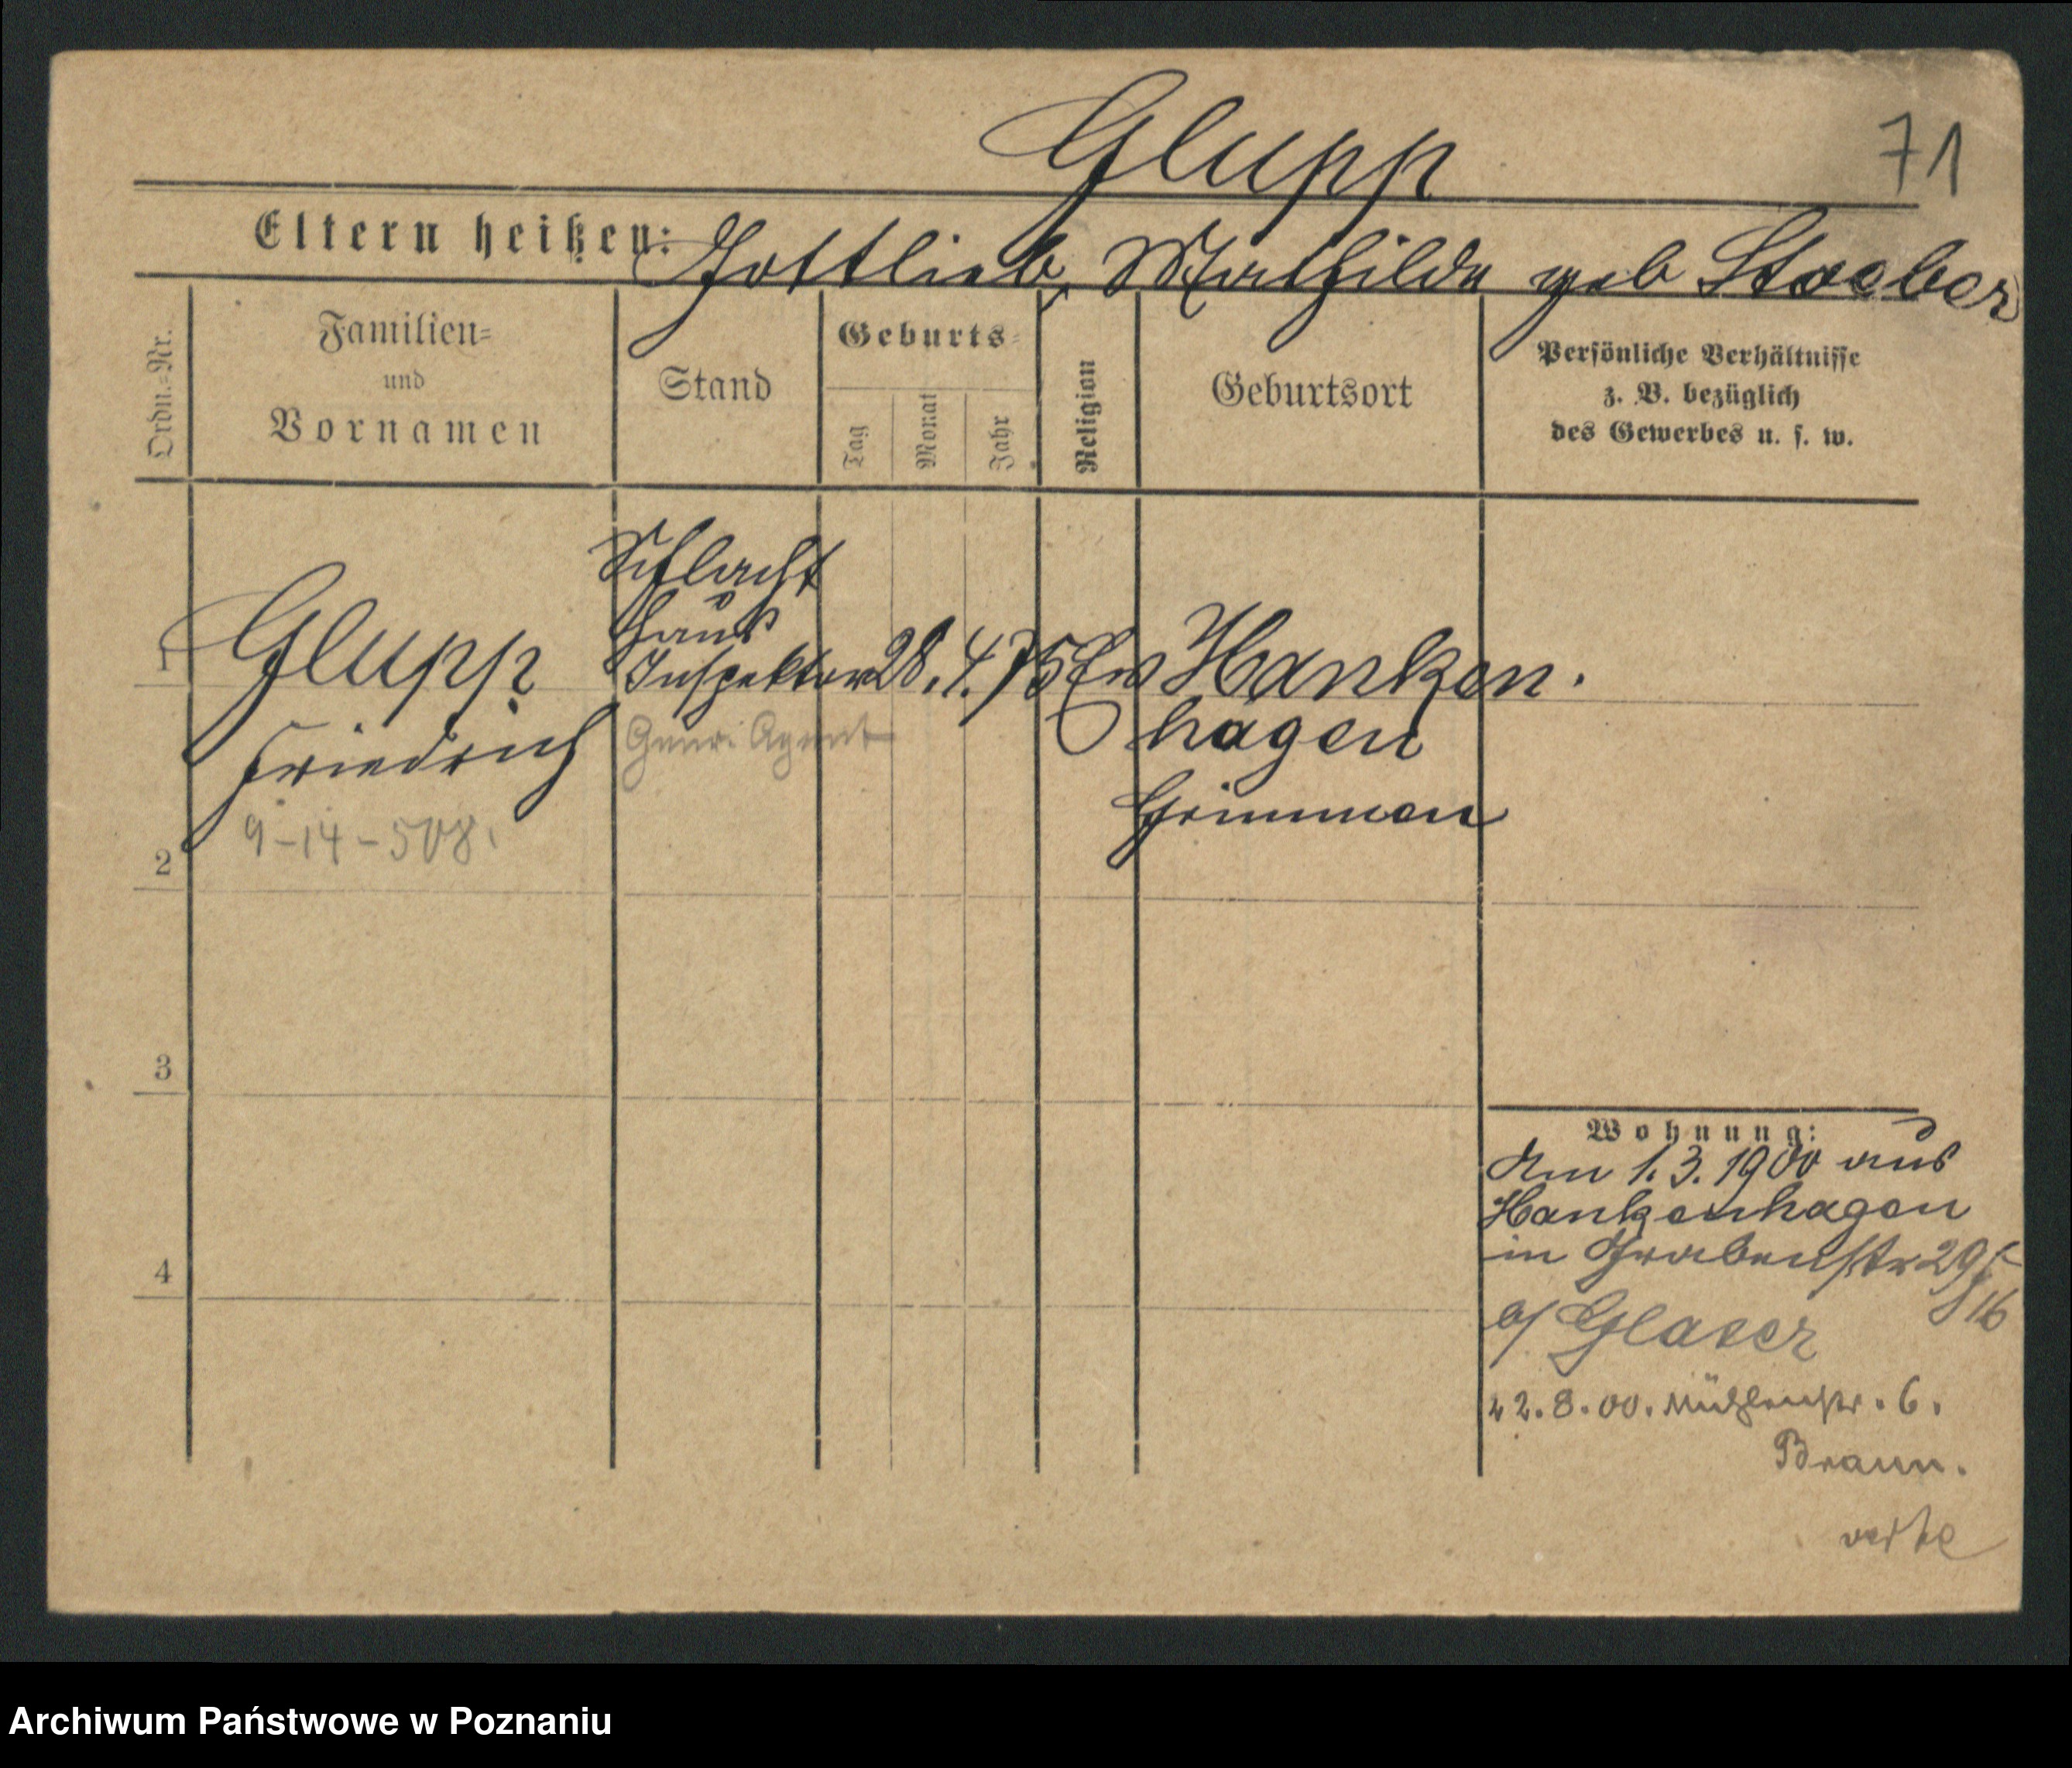 Glupp
71
Eltern heißen: Gottlieb, Mathilde geb Stoeber
Ordn.-Nr.
Familien-
und
Vornamen
Stand
Geburts-
Tag
Monat
Jahr
Religion
Geburtsort
Persönliche Verhältnisse
z. B. bezüglich
des Gewerbes u. s. w.
1
Glupp
Friedrich
9-14-508.
Schlacht
haus
Inspektor
Agent
28. 4. 75
Ev
Hanken.
hagen
Grimmen
2
3
4
Wohnung:
Am 1.3.1900 aus
Hankenhagen
in Grabenstr 29
b/ Glaser
16
2.8.00. Mühlenstr. 6.
Braun.